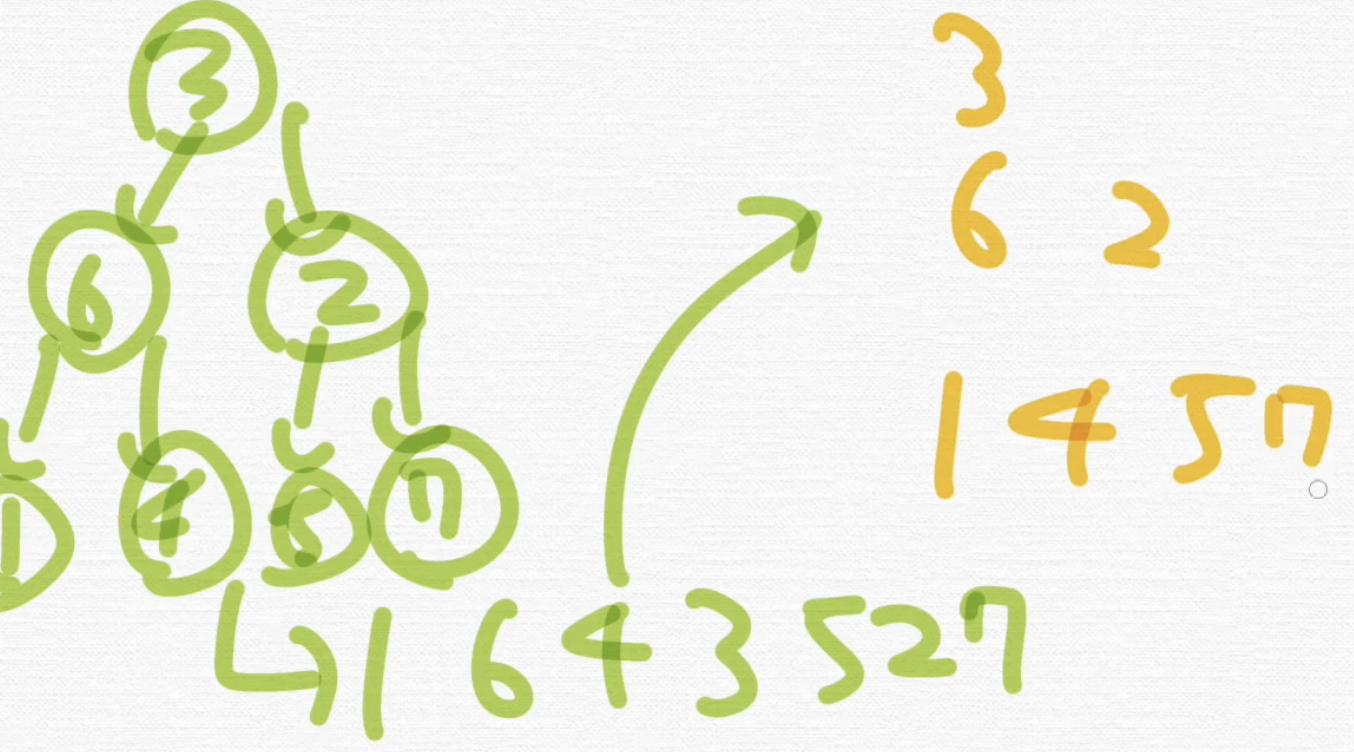 3
6 2
1 4 5 7
1 6 4 3 5 2 7
3
6 2
1 4 5 7